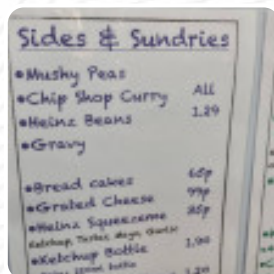 Sides & Sundries
•Mushy Peas
•Chip Shop Curry All
•Heinz Beans 1.29
•Gravy
•Bread cakes 65p
•Grated Cheese 99p
•Heinz Squeezeme 25p
Ketchup, Tartar, Mayo, Garlic
•Ketchup Bottle 1.90